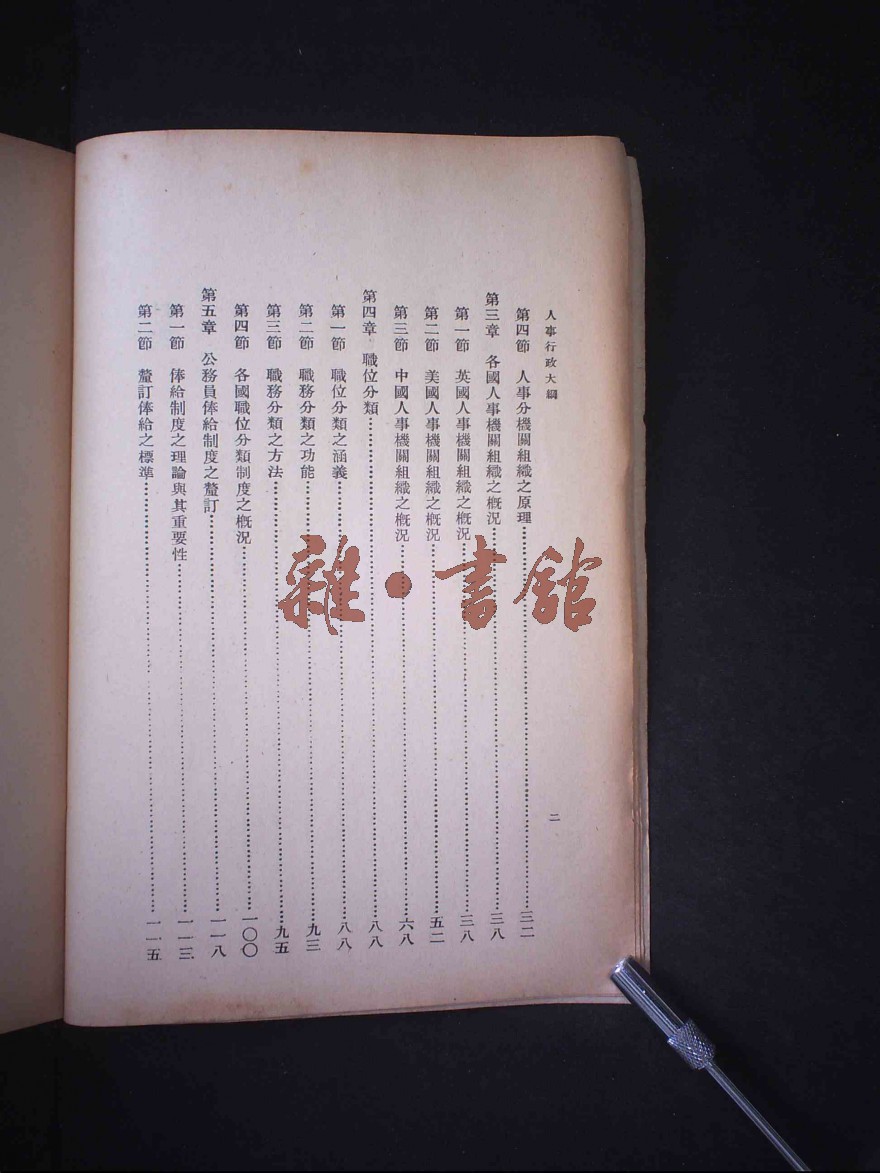 人事行政大綱
二
第四節　人事分機關組織之原理……三二
第三章　各國人事機關組織之概況……三八
第一節　英國人事機關組織之概況……三八
第二節　美國人事機關組織之概況……五二
第三節　中國人事機關組織之概況……六八
第四章　職位分類……八八
第一節　職位分類之涵義……八八
第二節　職務分類之功能……九三
第三節　職務分類之方法……九五
第四節　各國職位分類制度之概況……一〇〇
第五章　公務員俸給制度之釐訂……一一八
第一節　俸給制度之理論與其重要性……一一三
第二節　釐訂俸給之標準……一一五
雜·書館